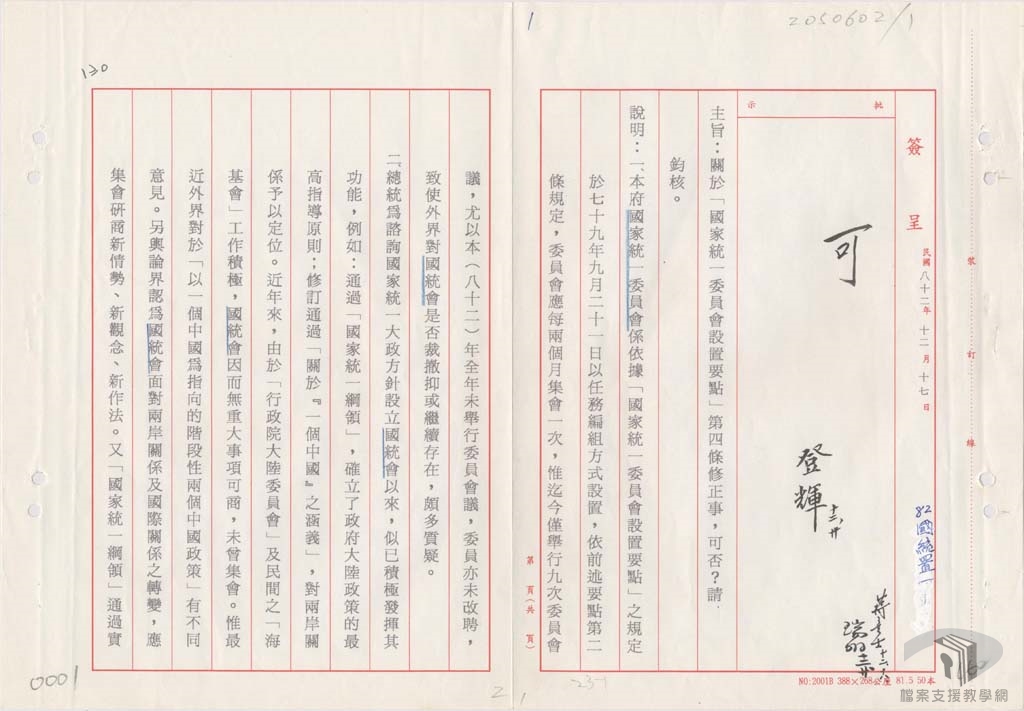 2050602/1
1
簽呈
民國八十二年十二月十七日
裝
訂
線
82國統置一
批示
可
登輝
十二、廿
主旨：關於「國家統一委員會設置要點」第四條修正事，可否？請
鈞核。
說明：一、本府國家統一委員會係依據「國家統一委員會設置要點」之規定
於七十九年九月二十一日以任務編組方式設置，依前述要點第二
條規定，委員會應每兩個月集會一次，惟迄今僅舉行九次委員會
第 頁（共 頁）
NO:2001B 388×268公厘 81.5 50本
130
議，尤以本（八十二）年全年未舉行委員會議，委員亦未改聘，
致使外界對國統會是否裁撤抑或繼續存在，頗多質疑。
二、總統為諮詢國家統一大政方針設立國統會以來，似已積極發揮其
功能，例如：通過「國家統一綱領」，確立了政府大陸政策的最
高指導原則；修訂通過「關於『一個中國』之涵義」，對兩岸關
係予以定位。近年來，由於「行政院大陸委員會」及民間之「海
基會」工作積極，國統會因而無重大事項可商，未曾集會。惟最
近外界對於「以一個中國為指向的階段性兩個中國政策」有不同
意見。另輿論界認為國統會面對兩岸關係及國際關係之轉變，應
集會研商新情勢、新觀念、新作法。又「國家統一綱領」通過實
0001
2
檔案支援教學網